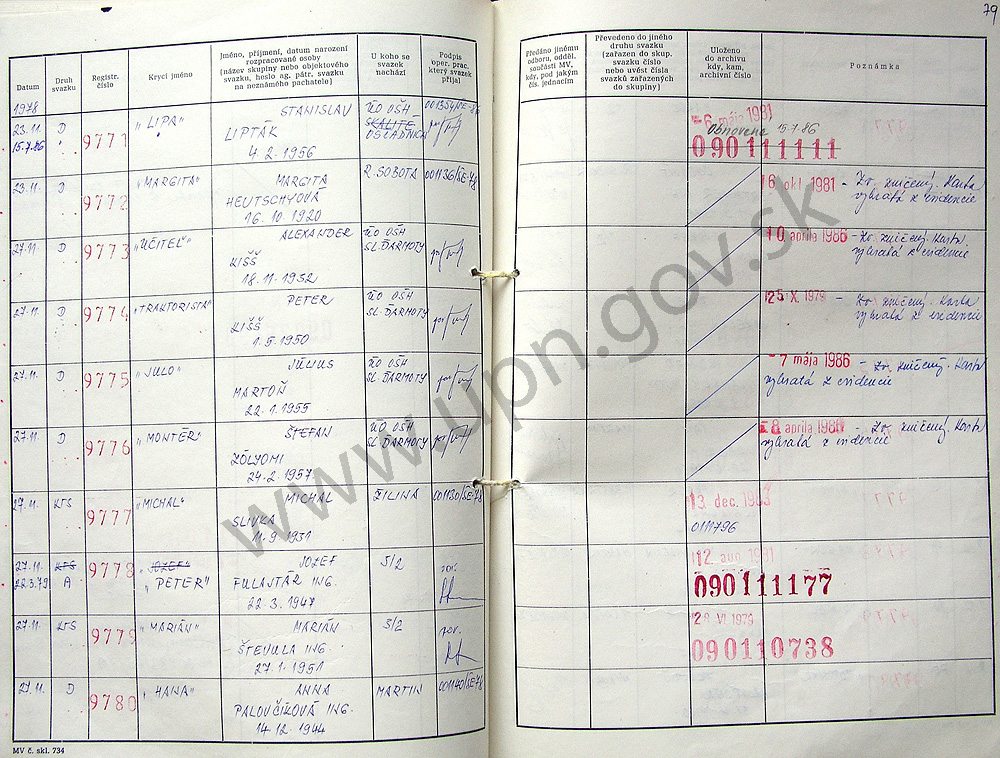 79
Datum
Druh svazku
Registr. číslo
Krycí jméno
Jméno, příjmení, datum narození
rozpracované osoby
(název skupiny nebo objektového
svazku, heslo ag. pátr. svazku
na neznámého pachatele)
U koho se
svazek
nachází
Podpis
oper. prac.
který svazek
přijal
Předáno jinému
odboru, odděl.
součásti MV,
kdy, pod jakým
čís. jednacím
Převedeno do jiného
druhu svazku
(zařazen do skup.
svazku číslo
nebo uvést čísla
svazků zařazených
do skupiny)
Uloženo
do archivu
kdy, kam,
archivní číslo
Poznámka
1978
23.11. D 9771 „LIPA" STANISLAV ÚO OŠH
15.7.86 " LIPTÁK SKALITÉ OSČADNICA
4. 2. 1956
6. mája 1981
Obnovene 15.7.86
090111111
23.11. D 9772 „MARGITA" MARGITA R. SOBOTA 001136/ŠE-78
HEUTSCHYOVÁ
16. 10. 1920
6 okt. 1981 - Zv. zničený. Karta
vybratá z evidencie
27.11. D 9773 „UČITEĽ" ALEXANDER ÚO OŠH
KIŠŠ SL. ĎARMOTY
18. 11. 1952
10. apríla 1986 - Zv. zničený. Karta
vybratá z evidencie
27.11. D 9774 „TRAKTORISTA" PETER ÚO OŠH
KIŠŠ SL. ĎARMOTY
1. 5. 1950
25. X. 1979 - Zv. zničený. Karta
vybratá z evidencie
27.11. D 9775 „JULO" JÚLIUS ÚO OŠH
MARTOŇ SL. ĎARMOTY
22. 1. 1955
-7 mája 1986 - Zv. zničený. Karta
vybratá z evidencie
27.11. D 9776 „MONTÉR" ŠTEFAN ÚO OŠH
ZÓLYOMI SL. ĎARMOTY
24. 2. 1957
8 apríla 1986 - Zv. zničený. Karta
vybratá z evidencie
27.11. KTS 9777 „MICHAL" MICHAL ŽILINA 001130/ŠE-78
SLIVKA
11. 9. 1931
13. dec. 1983
27.11. KTS 9778 „JOZEF" JOZEF S/2
22.3.79 A „PETER" FULAJTÁR ING.
22. 3. 1947
12. aug 1981
090111177
27.11. KTS 9779 „MARIÁN" MARIÁN S/2
ŠTEVULA ING.
27. 1. 1951
28. VI. 1979
090110738
27.11. D 9780 „HANA" ANNA MARTIN 001140/ŠE-78
PALOVČÍKOVÁ ING.
14. 12. 1944
MV č. skl. 734
www.upn.gov.sk